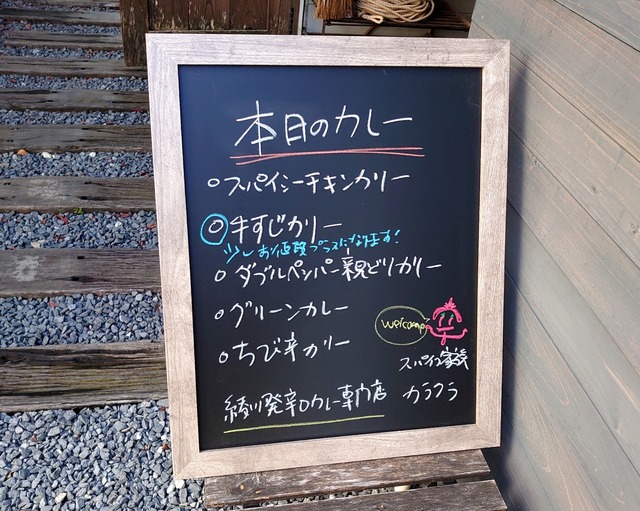 本日のカレー
○ スパイシーチキンカリー
◎ 牛すじカリー
少しお値段プラスになります!
○ ダブルペッパー親どりカリー
○ グリーンカレー
○ ちび辛カリー
welcome
スパイス家族
綾川発辛口カレー専門店 カラクラ